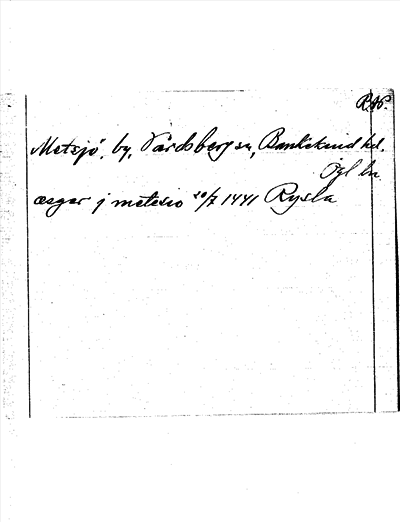 Metsjö, by, Vårdsbergs sn, Bankekind hd.
Ögl ln.
æger j metesio 20/7 1441 Rysla